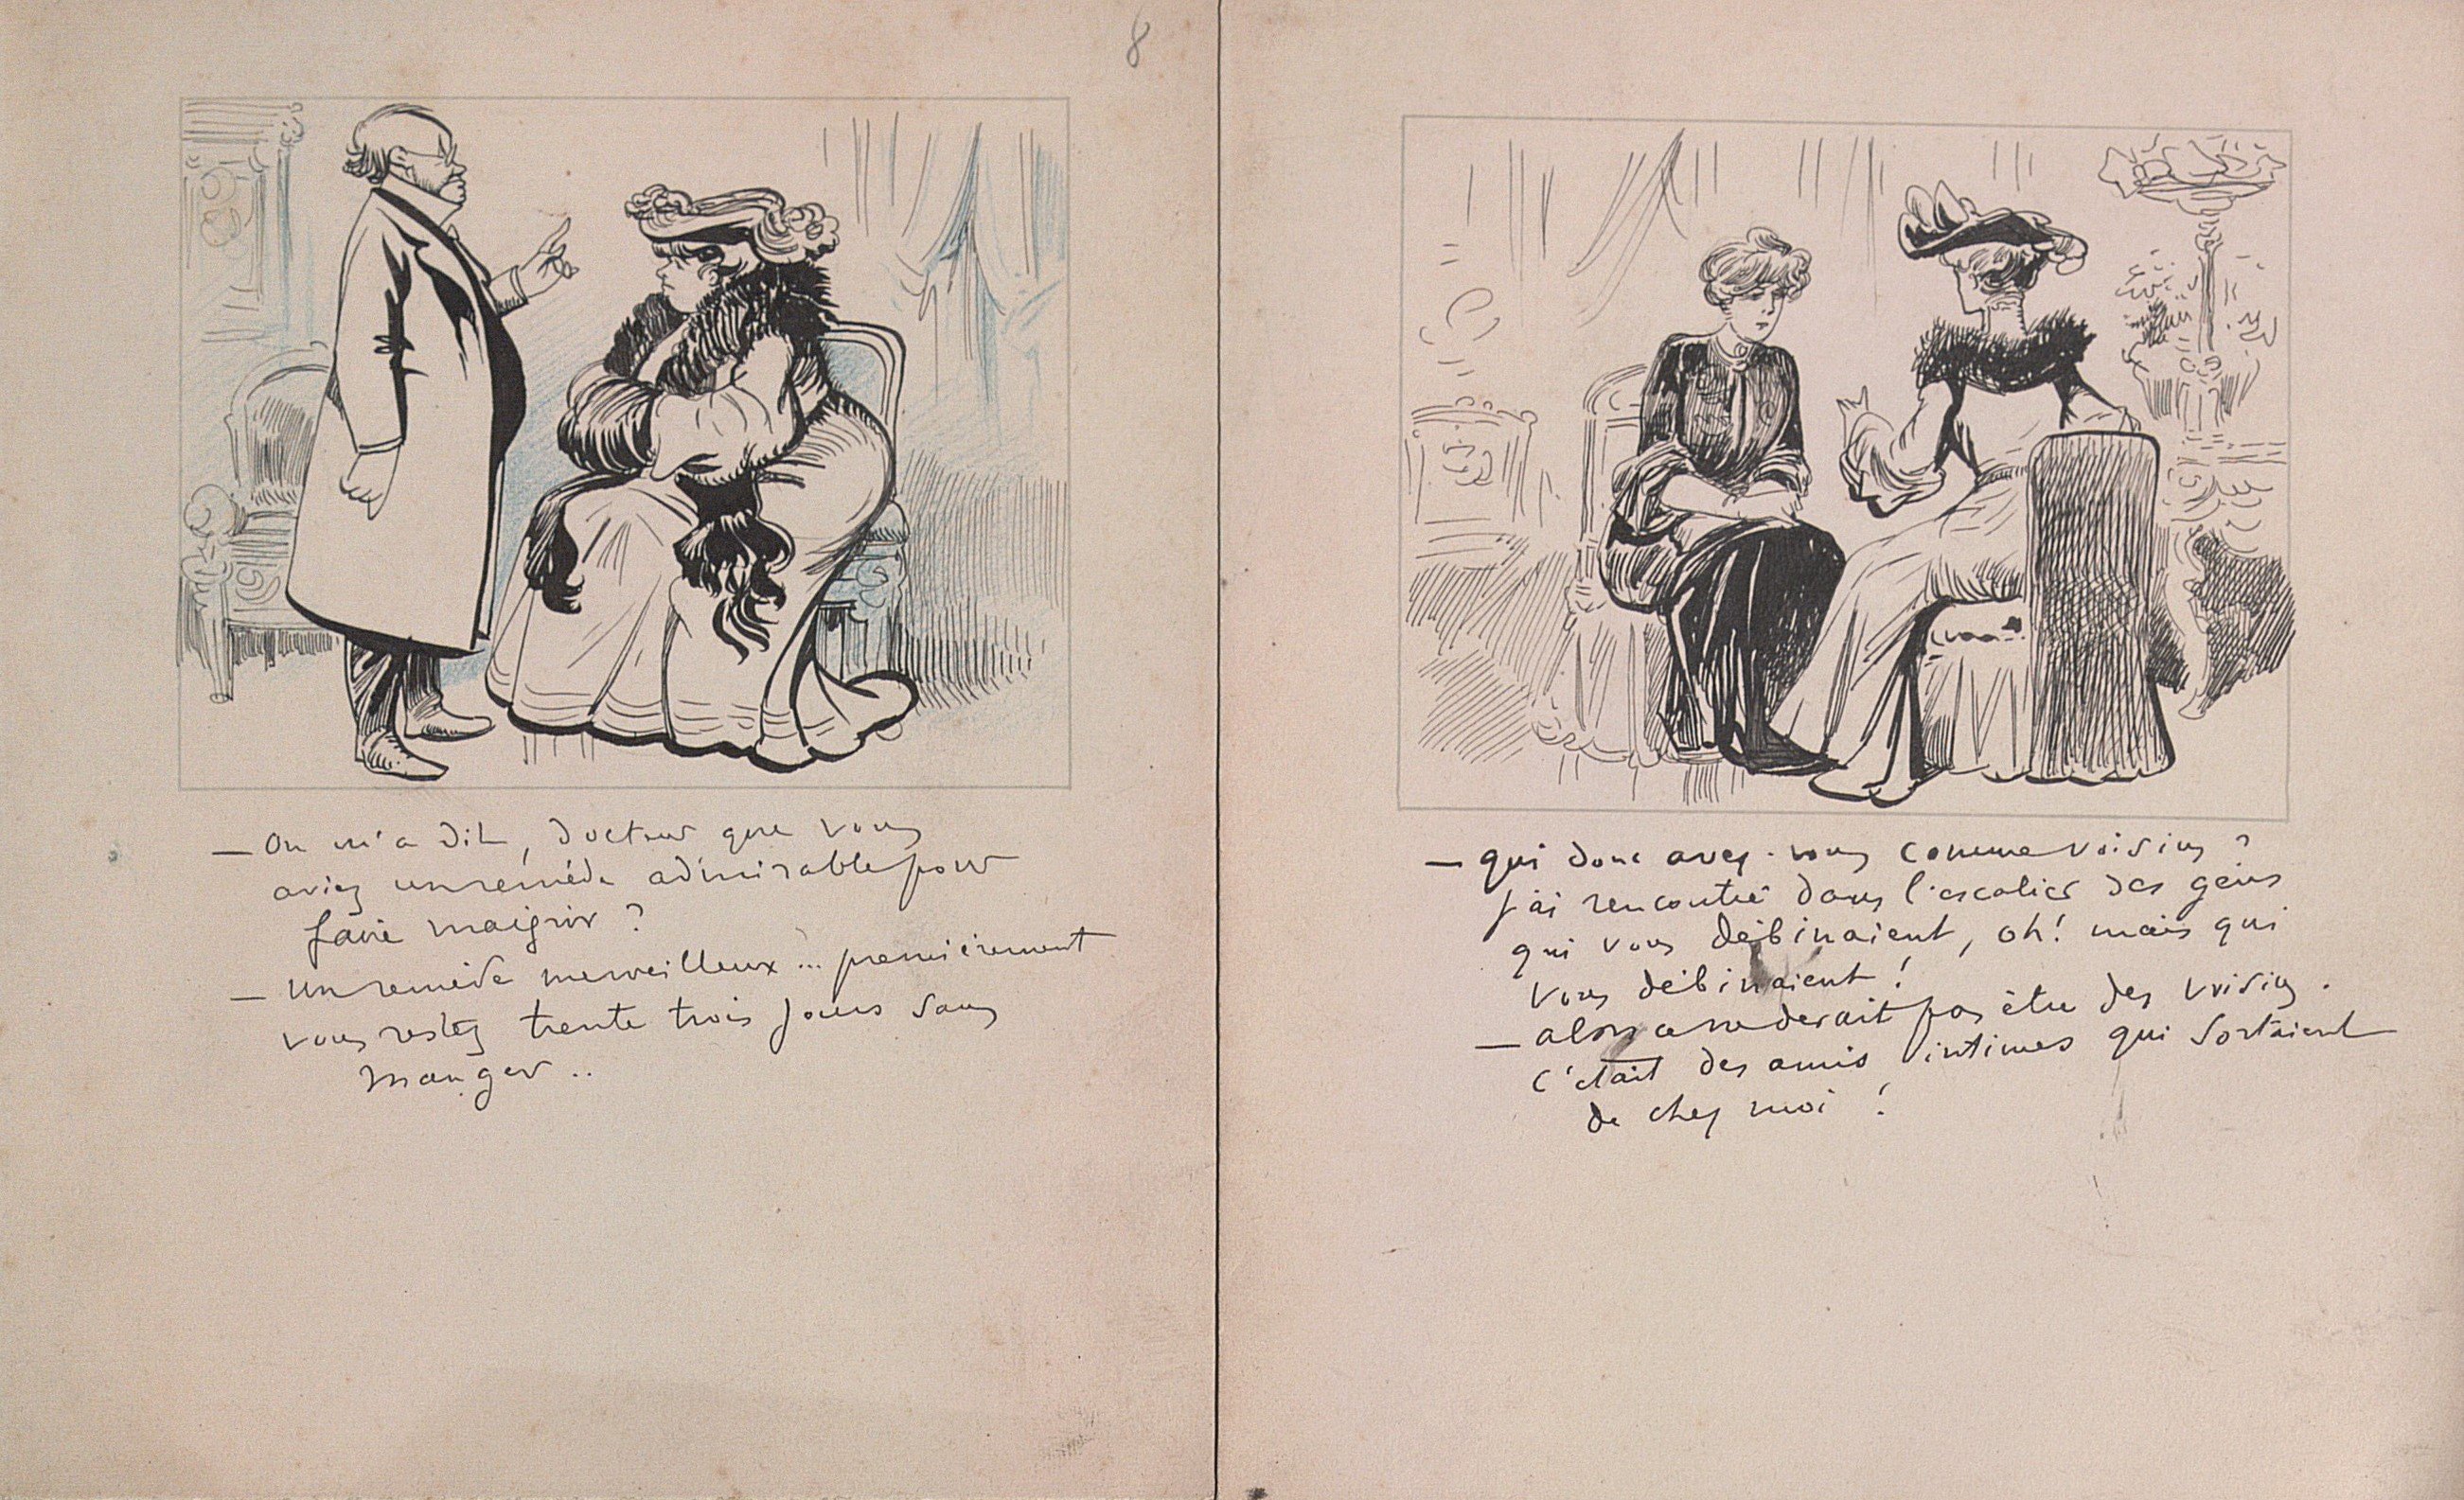 8
— On m'a dit, docteur que vous
aviez un remède admirable pour
faire maigrir ?
— Un remède merveilleux... premièrement
vous restez trente trois jours sans
manger..
— qui donc avez-vous comme voisins ?
j'ai rencontré dans l'escalier des gens
qui vous débinaient, oh! mais qui
vous débinaient !
— alors ce ne devait pas être des voisins.
c'était des amis intimes qui sortaient
de chez moi !